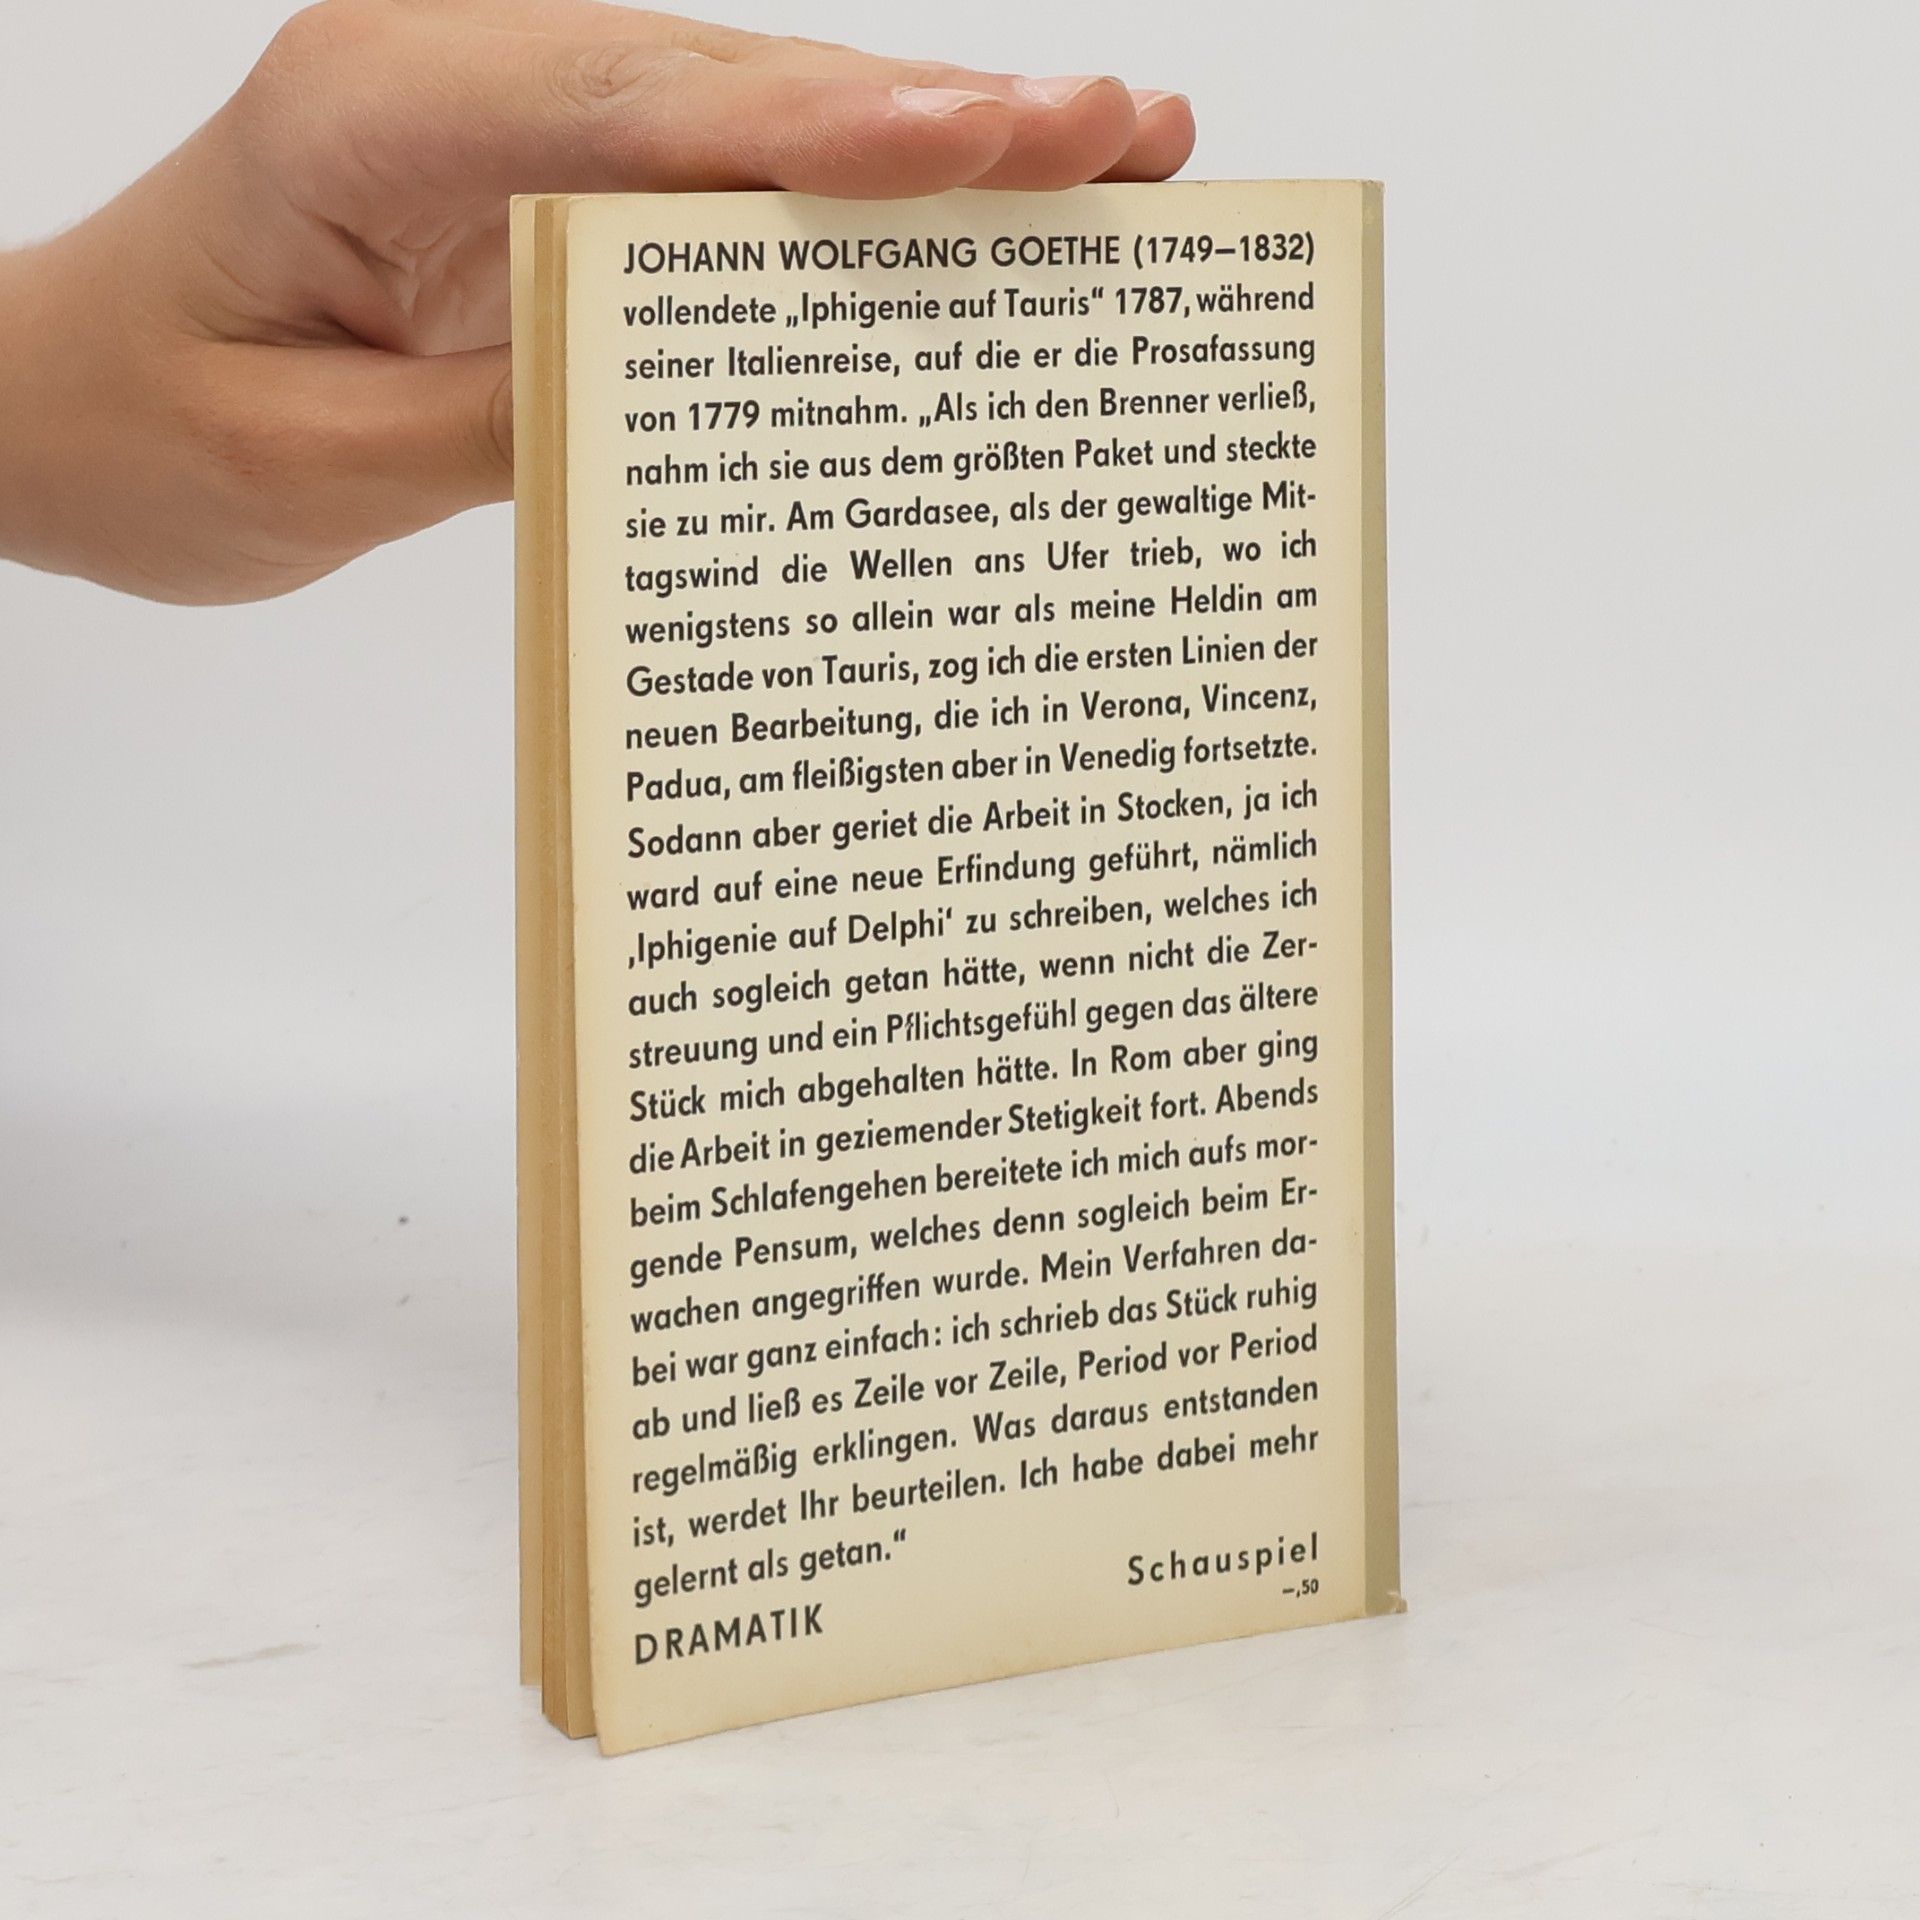 JOHANN WOLFGANG GOETHE (1749–1832)
vollendete „Iphigenie auf Tauris“ 1787, während
seiner Italienreise, auf die er die Prosafassung
von 1779 mitnahm. „Als ich den Brenner verließ,
nahm ich sie aus dem größten Paket und steckte
sie zu mir. Am Gardasee, als der gewaltige Mit-
tagswind die Wellen ans Ufer trieb, wo ich
wenigstens so allein war als meine Heldin am
Gestade von Tauris, zog ich die ersten Linien der
neuen Bearbeitung, die ich in Verona, Vincenz,
Padua, am fleißigsten aber in Venedig fortsetzte.
Sodann aber geriet die Arbeit in Stocken, ja ich
ward auf eine neue Erfindung geführt, nämlich
‚Iphigenie auf Delphi‘ zu schreiben, welches ich
auch sogleich getan hätte, wenn nicht die Zer-
streuung und ein Pflichtsgefühl gegen das ältere
Stück mich abgehalten hätte. In Rom aber ging
die Arbeit in geziemender Stetigkeit fort. Abends
beim Schlafengehen bereitete ich mich aufs mor-
gende Pensum, welches denn sogleich beim Er-
wachen angegriffen wurde. Mein Verfahren da-
bei war ganz einfach: ich schrieb das Stück ruhig
ab und ließ es Zeile vor Zeile, Period vor Period
regelmäßig erklingen. Was daraus entstanden
ist, werdet Ihr beurteilen. Ich habe dabei mehr
gelernt als getan.“
Schauspiel
–,50
DRAMATIK